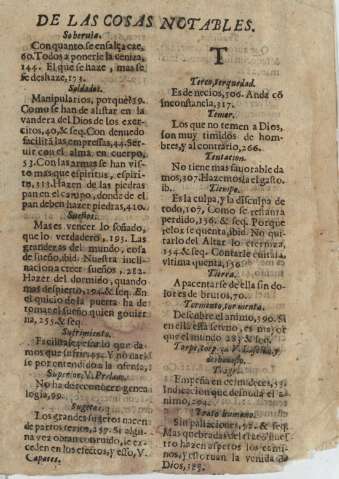 DE LAS COSAS NOTABLES.
Soberuia.
Con quanto se ensalça cae,
60. Todos a ponerle la ceniza,
144. El que se haze, mas se
se deshaze, 173.
Soldados.
Manipularios, porque? 29.
Como se han de alistar en la
vandera del Dios de los exer-
citos, 40, & seq. Con denuedo
facilità las empressas, 44. Ser-
uir con el alma, en cuerpo,
53. Con las armas se han vis-
to mas que espiritus, espiri-
tu, 313. Hazen de las piedras
pan en el campo, donde el
pan deben hazer piedras, 420.
Sueños.
Mas es vencer lo soñado,
que lo verdadero, 195. Las
grandezas del mundo, cosa
de sueño, ibid. Nuestra incli-
nacion a creer sueños, 282.
Hazer del dormido, quando
mas despierto, 294. & seq. En
el quicio de la puerta ha de
tomar el sueño quien gouier
na, 255. & seq.
Sufrimiento.
lo que da-
mos que sufrir, 45. Y no nace
se por entendido a la ofensa,
Superior, V. Prelado.
No ha de reconocer genea
logia, 99.
Sugetos.
Los grandes sugetos nacen
de partos recios, 257. Si algu-
na vez obran cortido, le ex-
ceden en los efectos, y esso, V.
Capaces.
T
Terco, terquedad.
Es de necios, 306. Anda cõ
inconstancia, 317.
Temor.
Los que no temen a Dios,
son muy timidos de hom-
bres, y al contrario, 266.
Tentacion.
No tiene mas fauorable da
mos, 307. Hazemosla el gasto,
ib.
Tiempo.
Es la culpa, y la disculpa de
todo, 107. Como se restaura
perdido, 136. & seq. Porque
relox se quenta, ibid. No qui-
tarlo del Altar lo eterniza,
154 & seq. Contarle en la
vltima quenta, 156
Tierra.
Apacentarse de ella sin do-
lores de brutos, 70.
Tormento, tormenta.
Descubre el animo, 190. Si
en ella està sereno, es mayor
que el mundo 283 & seq.
Trage.
Empeña en
Indicacion que desnuda el a-
nimo, 204.
Trato humano.
Sin paliaciones, 58. & seq.
Mas quebradas del trato hues
tro hazen asperos los cami-
nos, y estoruan la venida de
Dios, 189.